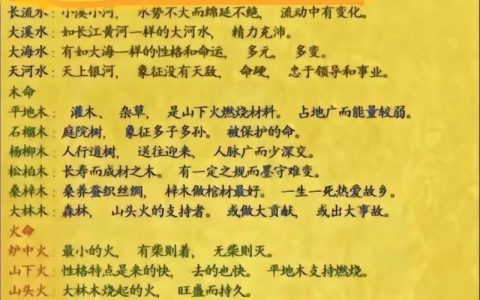 长流水：小溪小河，水势不大而绵延不绝，流动中有变化。
大溪水：如长江黄河一样的大河水，精力充沛。
大海水：有如大海一样的性格和命运，多元，多变。
天河水：天上银河，象征没有天敌，命硬，忠于领导和事业。
木命
平地木：灌木、杂草，是山下火燃烧材料。占地广而能量较弱。
石榴木：庭院树，象征多子多孙。被保护的命。
杨柳木：人行道树，送往迎来，人脉广而少深交。
松柏木：长寿而成材之木。有一定之规而墨守难变。
桑梓木：桑养蚕织丝绸，梓木做棺材最好。一生一死热爱故乡。
大林木：森林，山头火的支持者。或做大贡献，或出大事故。
火命
炉中火：最小的火，有柴则着，无柴则灭。
山下火：性格特点是来的快，去的也快。平地木支持燃烧。
山头火：大林木烧起的火，旺盛而持久。